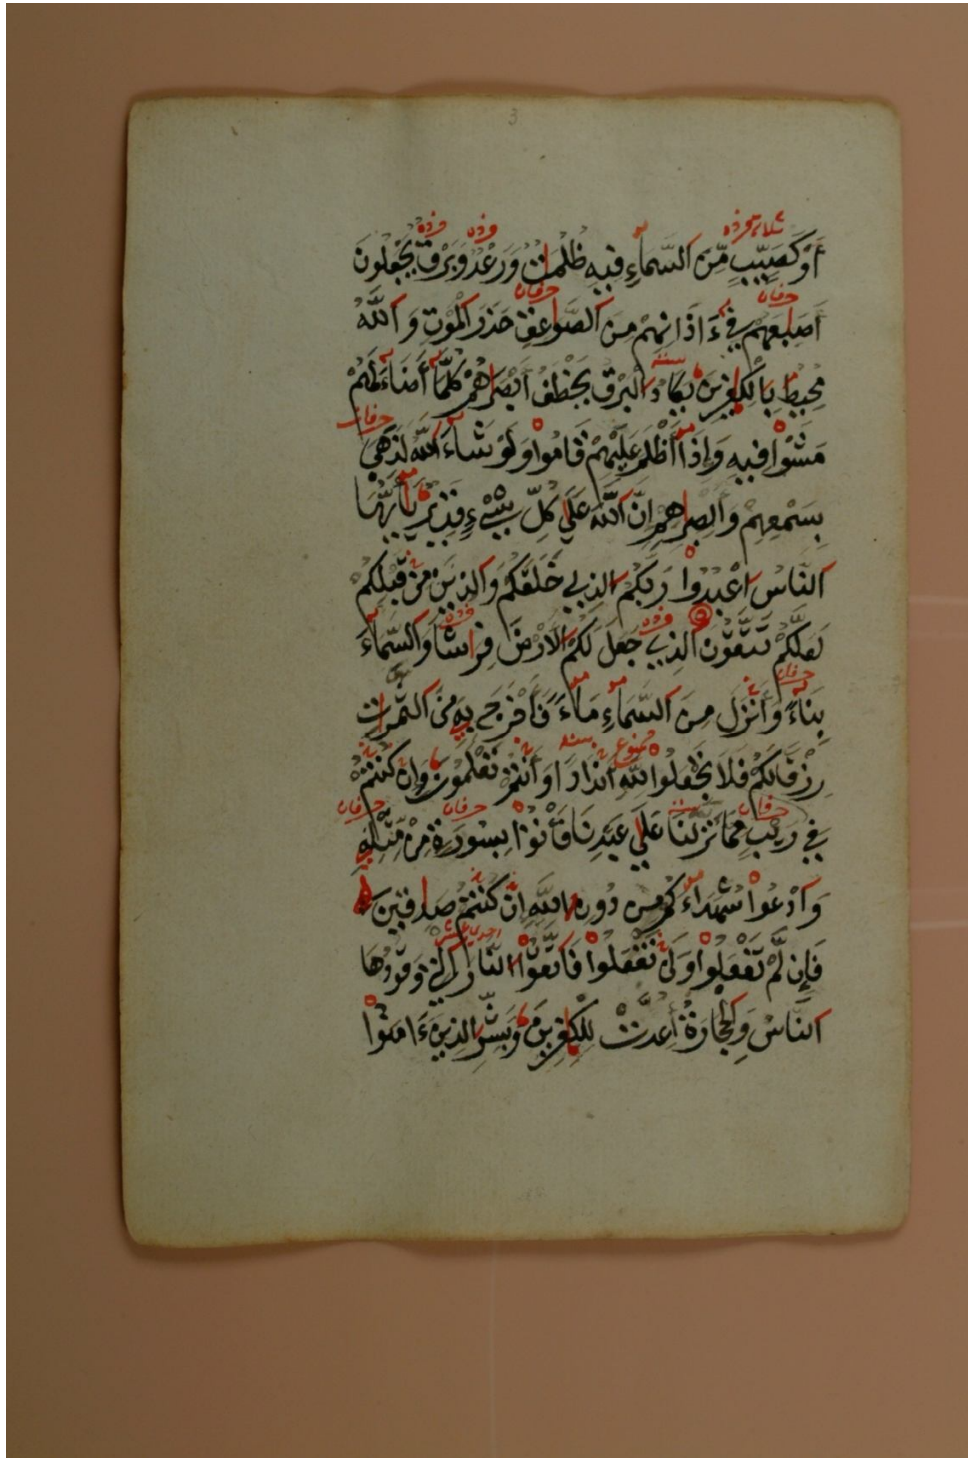 3
ثلاثة مفرده فرده فرده
أَوْ كَصَيِّبٍ مِّنَ السَّمَاءِ فِيهِ ظُلُمَاتٌ وَرَعْدٌ وَبَرْقٌ يَجْعَلُونَ
حرفان حرفان
أَصَٰبِعَهُمْ فِي ءَاذَانِهِمْ مِنَ الصَّوَٰعِقِ حَذَرَ الْمَوْتِ وَاللَّهُ
مُحِيطٌ بِالْكَٰفِرِينَ يَكَادُ الْبَرْقُ يَخْطَفُ أَبْصَٰرَهُمْ كُلَّمَا أَضَاءَ لَهُمْ
حرفان
مَشَوْا فِيهِ وَإِذَا أَظْلَمَ عَلَيْهِمْ قَامُوا وَلَوْ شَاءَ اللَّهُ لَذَهَبَ
بِسَمْعِهِمْ وَأَبْصَٰرِهِمْ إِنَّ اللَّهَ عَلَي كُلِّ شَيْءٍ قَدِيرٌ يَا أَيُّهَا
النَّاسُ اعْبُدُوا رَبَّكُمُ الَّذِي خَلَقَكُمْ وَالَّذِينَ مِنْ قَبْلِكُمْ
فرده
لَعَلَّكُمْ تَتَّقُونَ الَّذِي جَعَلَ لَكُمُ الْأَرْضَ فِرَاشًا وَالسَّمَاءَ
حرفان
بِنَاءً وَأَنْزَلَ مِنَ السَّمَاءِ مَاءً فَأَخْرَجَ بِهِ مِنَ الثَّمَرَاتِ
ممنوع
رِزْقًا لَكُمْ فَلَا تَجْعَلُوا لِلَّهِ أَنْدَادًا وَأَنْتُمْ تَعْلَمُونَ وَإِنْ كُنْتُمْ
حرفان حرفان حرفان
فِي رَيْبٍ مِمَّا نَزَّلْنَا عَلَي عَبْدِنَا فَأْتُوا بِسُورَةٍ مِنْ مِّثْلِهِ
وَادْعُوا شُهَدَاءَكُمْ مِنْ دُونِ اللَّهِ إِنْ كُنْتُمْ صَٰدِقِينَ
احدي عشر
فَإِن لَّمْ تَفْعَلُوا وَلَنْ تَفْعَلُوا فَاتَّقُوا النَّارَ الَّتِي وَقُودُهَا
النَّاسُ وَالْحِجَارَةُ أُعِدَّتْ لِلْكَٰفِرِينَ وَبَشِّرِ الَّذِينَ ءَامَنُوا